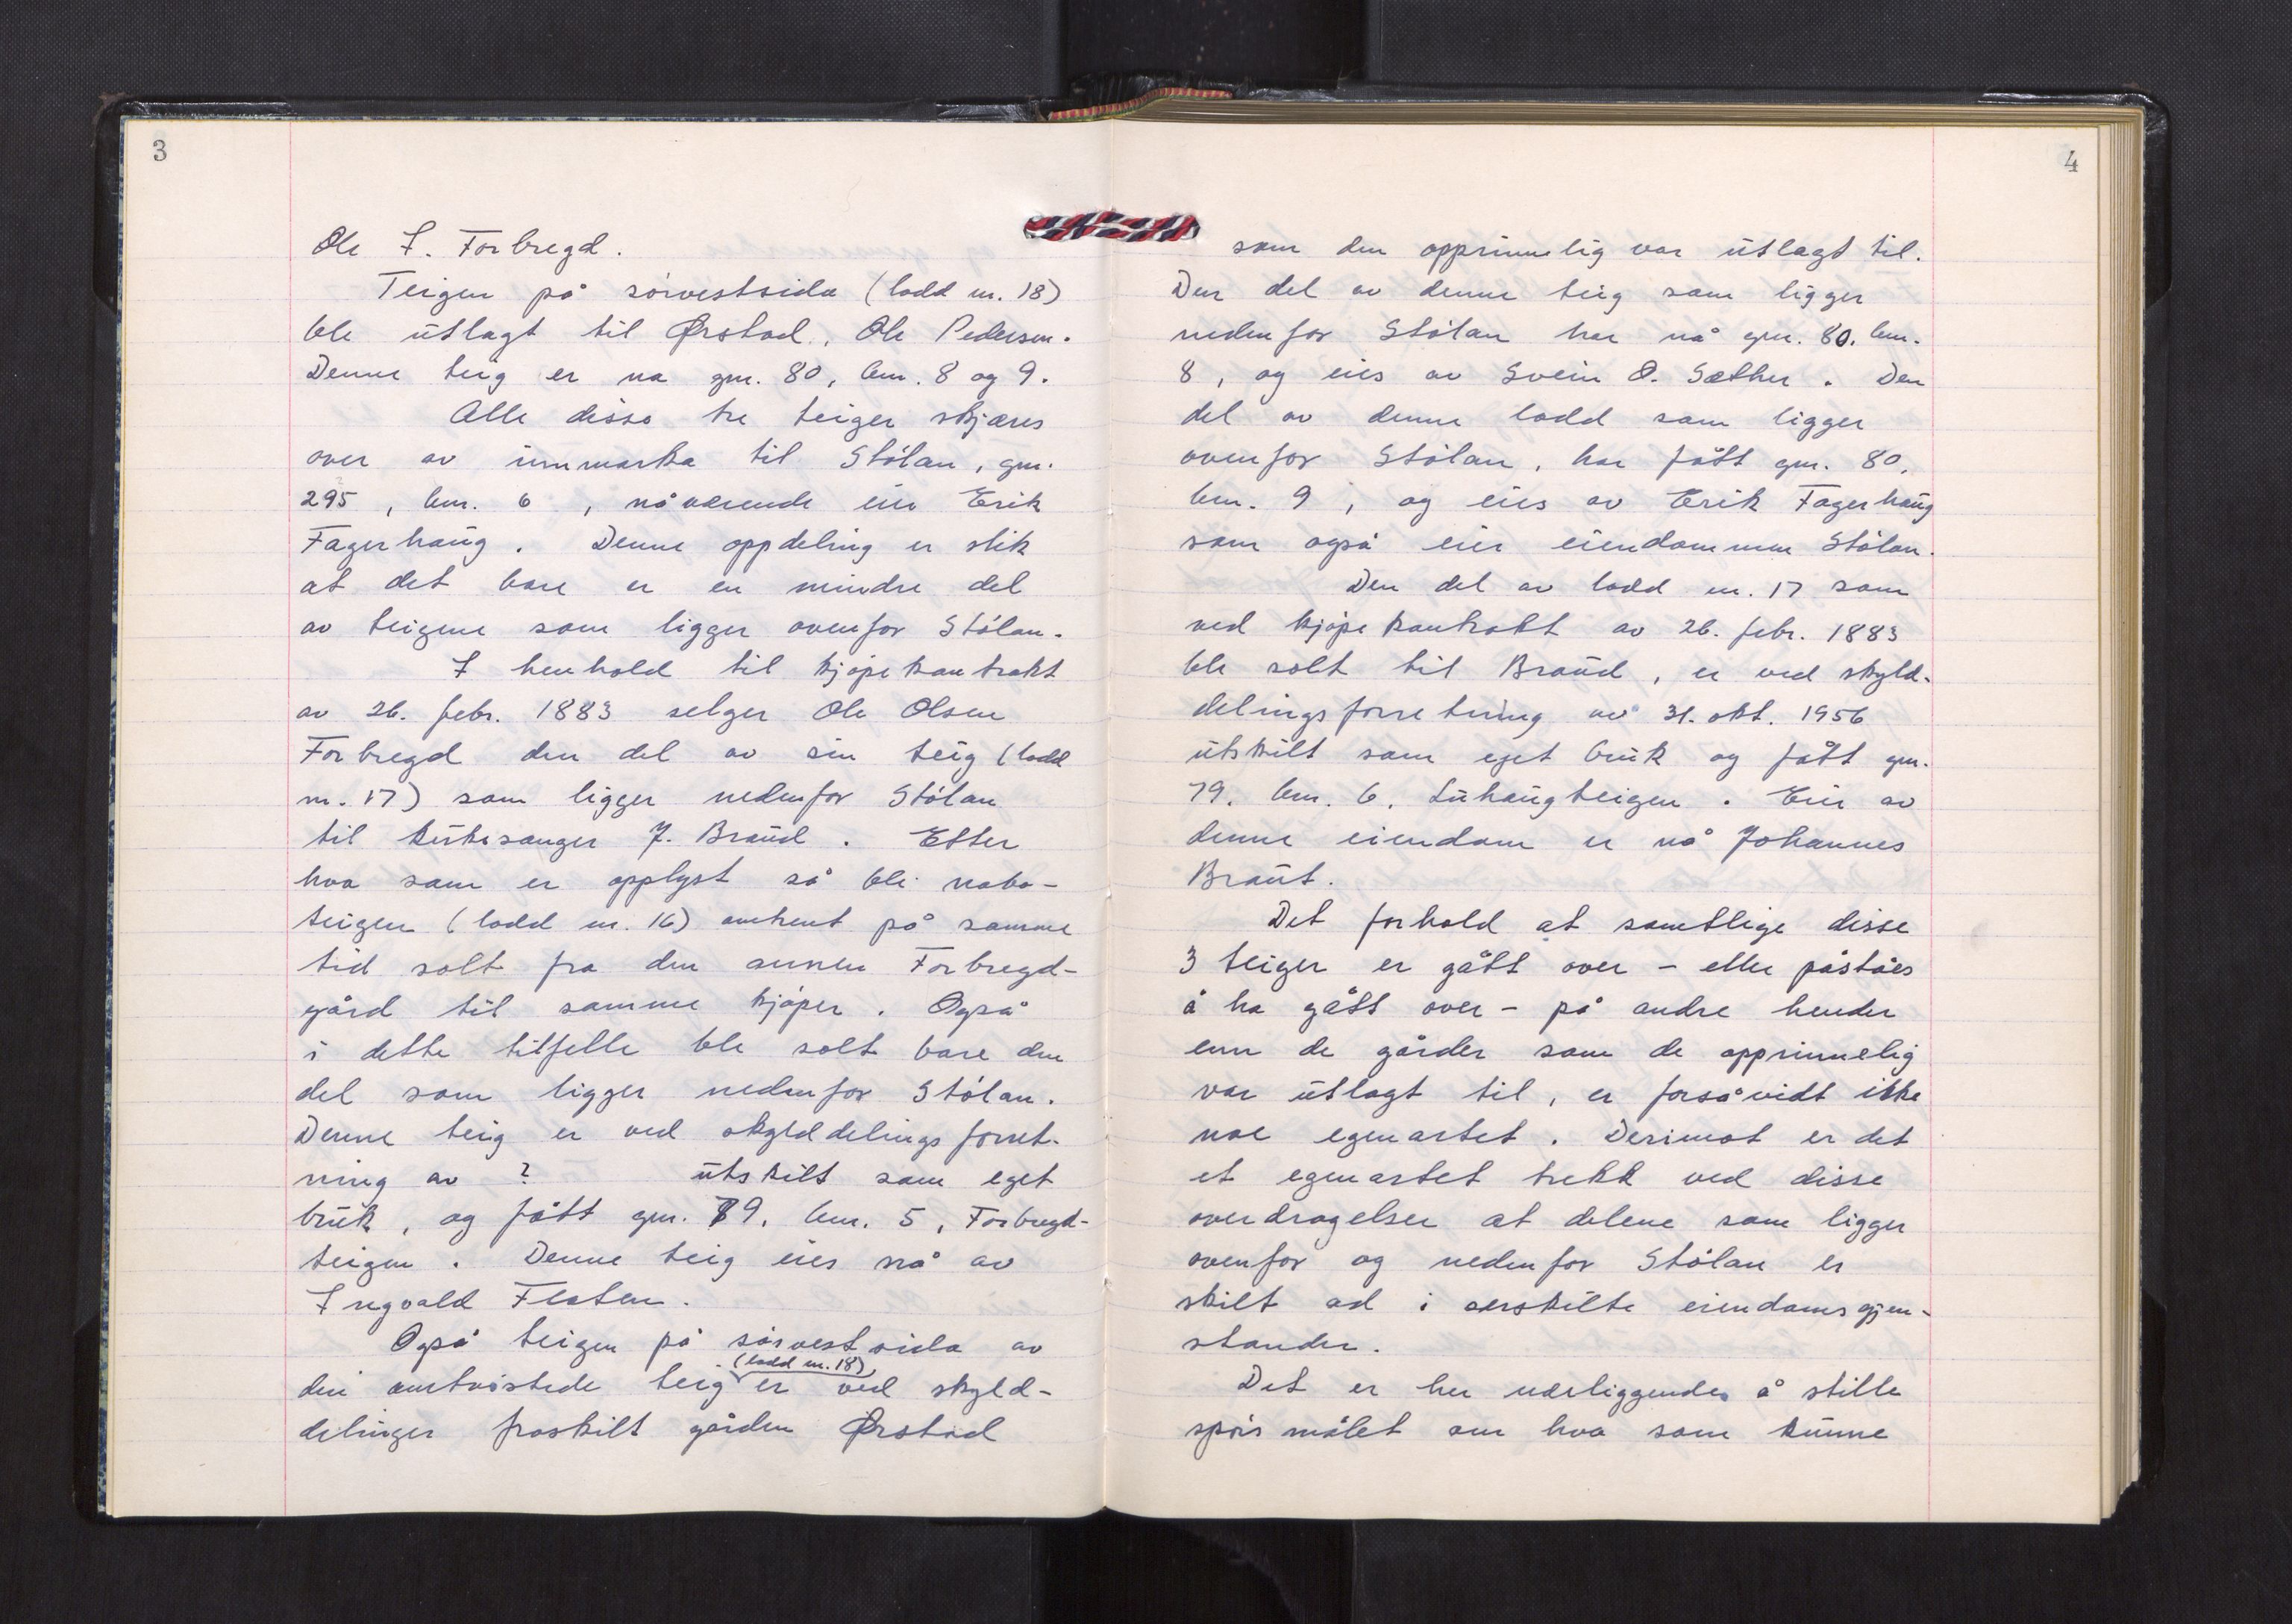 3
Ole I. Forbregd.
Teigen på sørvestsida (lodd nr. 18)
ble utlagt til Ørstad, Ole Pedersen.
Denne teig er na gnr. 80, bnr. 8 og 9.
Alle disse tre teiger skjæres
over av innmarka til Stólan, gnr.
295, bnr. 6, nåværende eier Erik
Fagerhaug. Denne oppdeling er slik
at det bare er en mindre del
av teigene som ligger ovenfor Stólan.
I henhold til kjøpekontrakt
av 26. febr. 1883 selger Ole Olsen
Forbregd den del av sin teig (lodd
nr. 17) som ligger nedenfor Stólan
til kirkesanger J. Braud. Etter
hva som er opplyst så ble nabo-
teigen (lodd nr. 16) omtrent på samme
tid solt fra den annen Forbregd-
gård til samme kjøper. Også
i dette tilfelle ble solt bare den
del som ligger nedenfor Stólan.
Denne teig er ved skylddelingsforret-
ning av ? utskilt som eget
bruk, og fått gnr. 79, bnr. 5, Forbregd-
teigen. Denne teig eies nå av
Ingvald Flaten.
Også teigen på sørvestsida av
(lodd nr. 18)
den omtvistede teig er ved skyld-
delinger fraskilt gården Ørstad
4
som den opprinnelig var utlagt til.
Den del av denne teig som ligger
nedenfor Stólan har nå gnr. 80, bnr.
8, og eies av Svein O. Sæther. Den
del av denne lodd som ligger
ovenfor Stólan, har fått gnr. 80,
bnr. 9, og eies av Erik Fagerhaug
som også eier eiendommen Stólan.
Den del av lodd nr. 17 som
ved kjøpekontrakt av 26. febr. 1883
ble solt til Braud, er ved skyld-
delingsforretning av 31. okt. 1956
utskilt som eget bruk og fått gnr.
79, bnr. 6, Luhaugteigen. Eier av
denne eiendom er nå Johannes
Braut.
Det forhold at samtlige disse
3 teiger er gått over - eller påståes
å ha gått over - på andre hender
enn de gårder som de opprinnelig
var utlagt til, er forsåvidt ikke
noe egenartet. Derimot er det
et egenartet trekk ved disse
overdragelser at delene som ligger
ovenfor og nedenfor Stólan er
skilt ad i særskilte eiendomsgjen-
stander.
Det er her nærliggende å stille
spørsmålet om hva som kunne